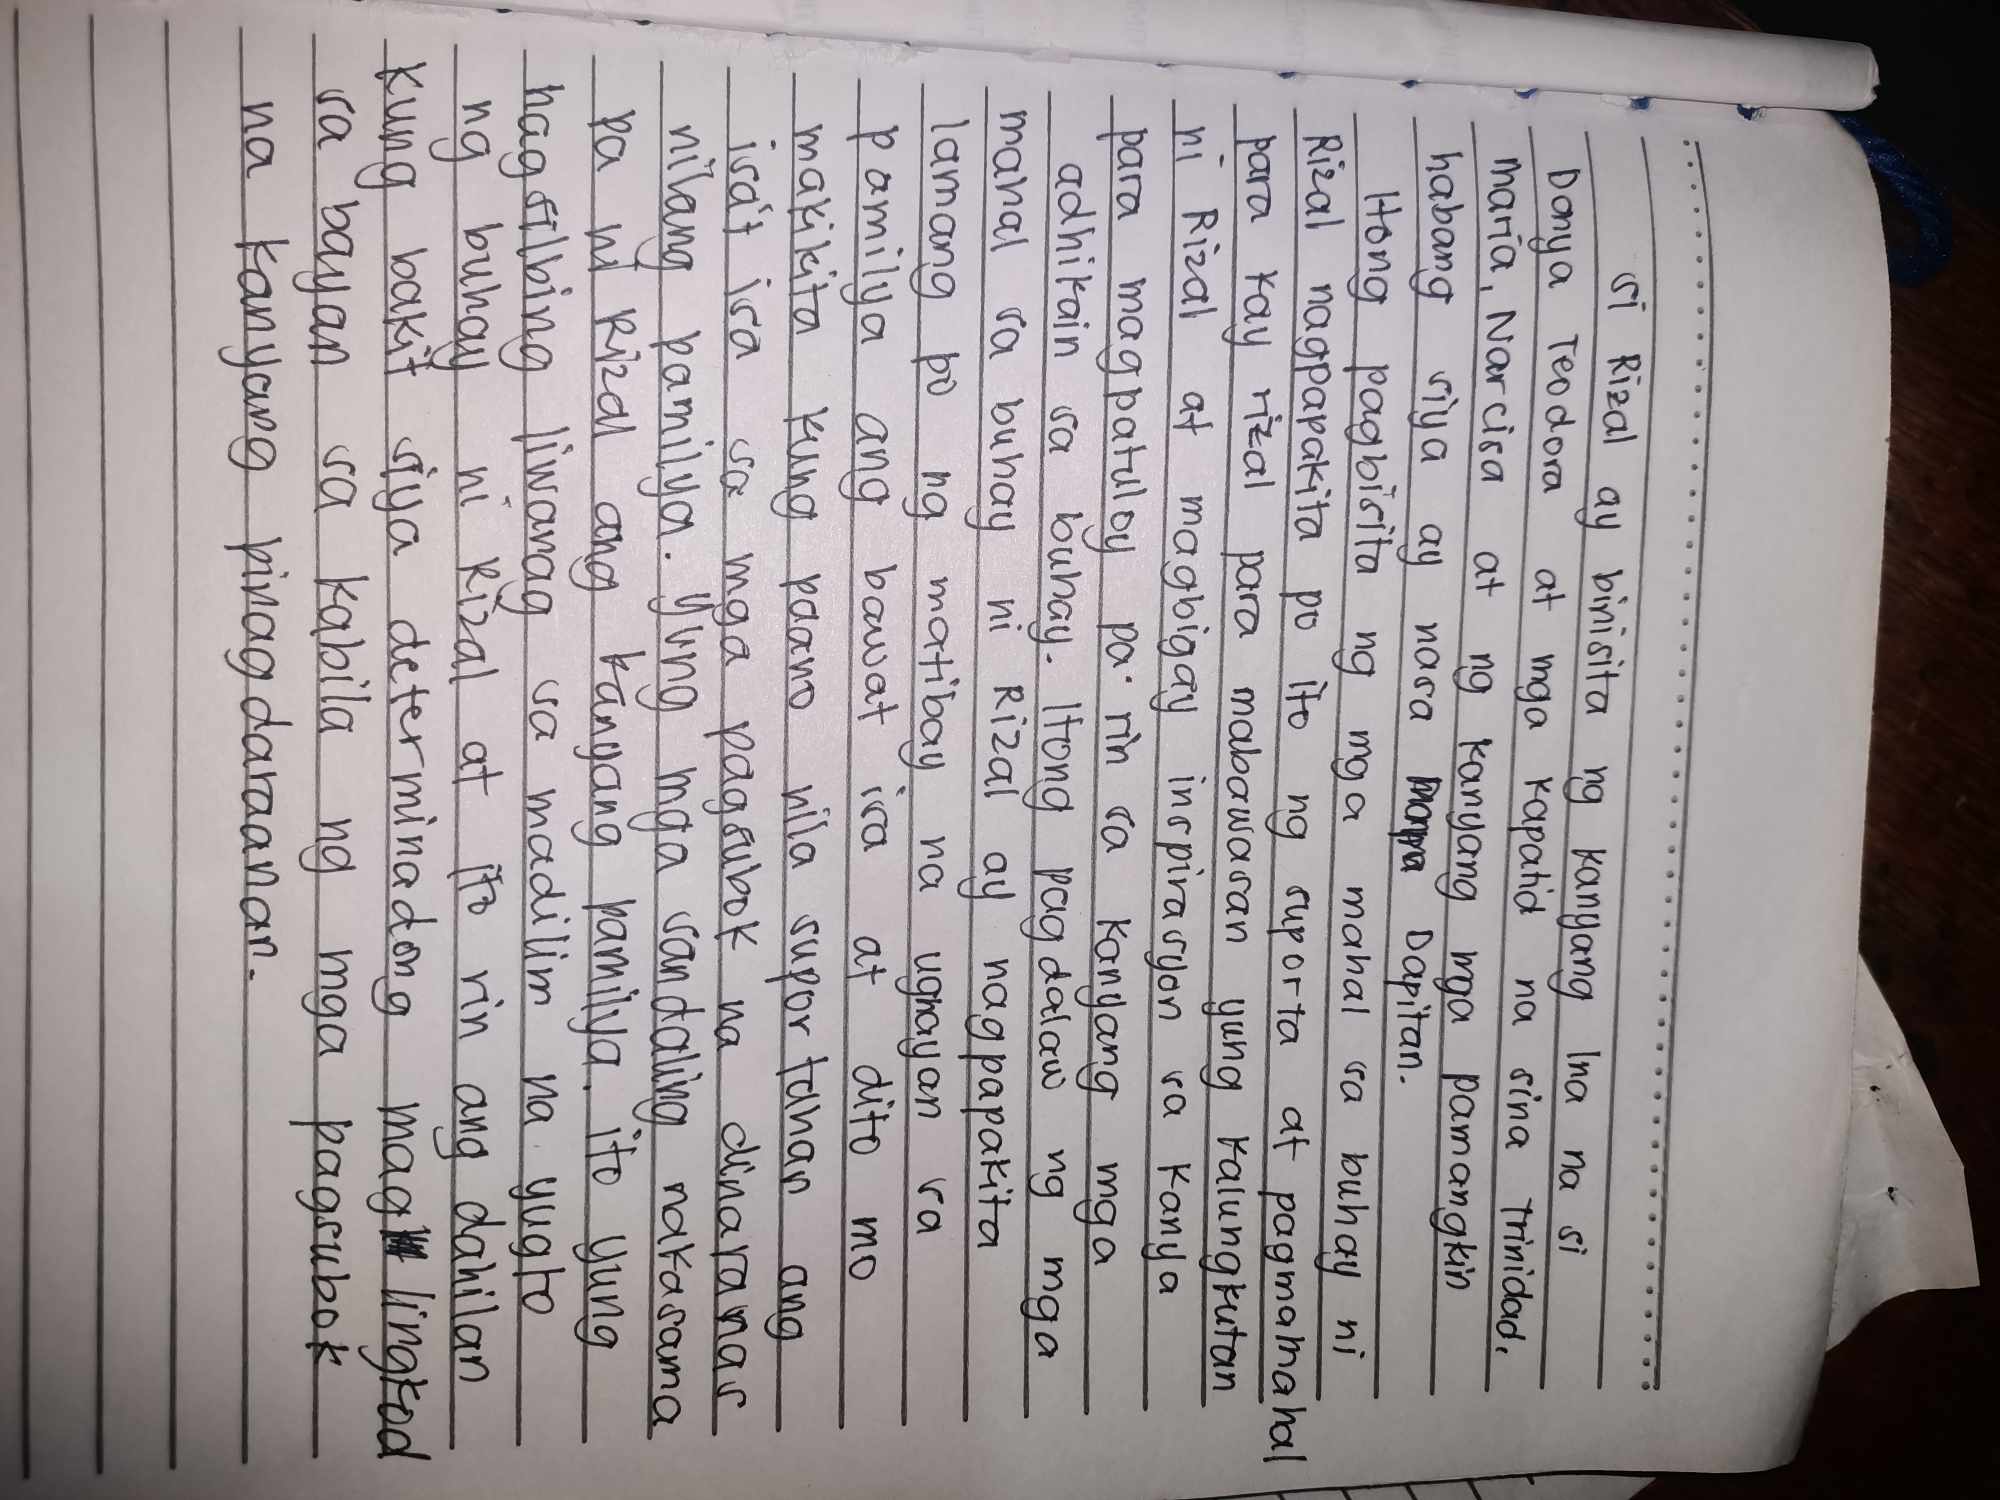 si Rizal ay binisita ng kanyang Ina na si
Donya Teodora at mga kapatid na sina Trinidad,
maria, Narcisa at ng kanyang mga pamangkin
habang siya ay nasa Dapitan.
Itong pagbisita ng mga mahal sa buhay ni
Rizal nagpapakita po ito ng suporta at pagmamahal
para kay rizal para mabawasan yung kalungkutan
ni Rizal at magbigay inspirasyon sa kanya
para magpatuloy pa rin sa kanyang mga
adhikain sa buhay. Itong pagdalaw ng mga
mahal sa buhay ni Rizal ay nagpapakita
lamang po ng matibay na ugnayan sa
pamilya ang bawat isa at dito mo
makikita kung paano nila suportahan ang
isa't isa sa mga pagsubok na dinaranas
nilang pamilya. Yung mga sandaling nakasama
pa ni Rizal ang kanyang pamilya. ito yung
nagsilbing liwanag sa madilim na yugto
ng buhay ni Rizal at ito rin ang dahilan
kung bakit siya determinadong maglingkod
sa bayan sa kabila ng mga pagsubok
na kanyang pinagdaraanan.